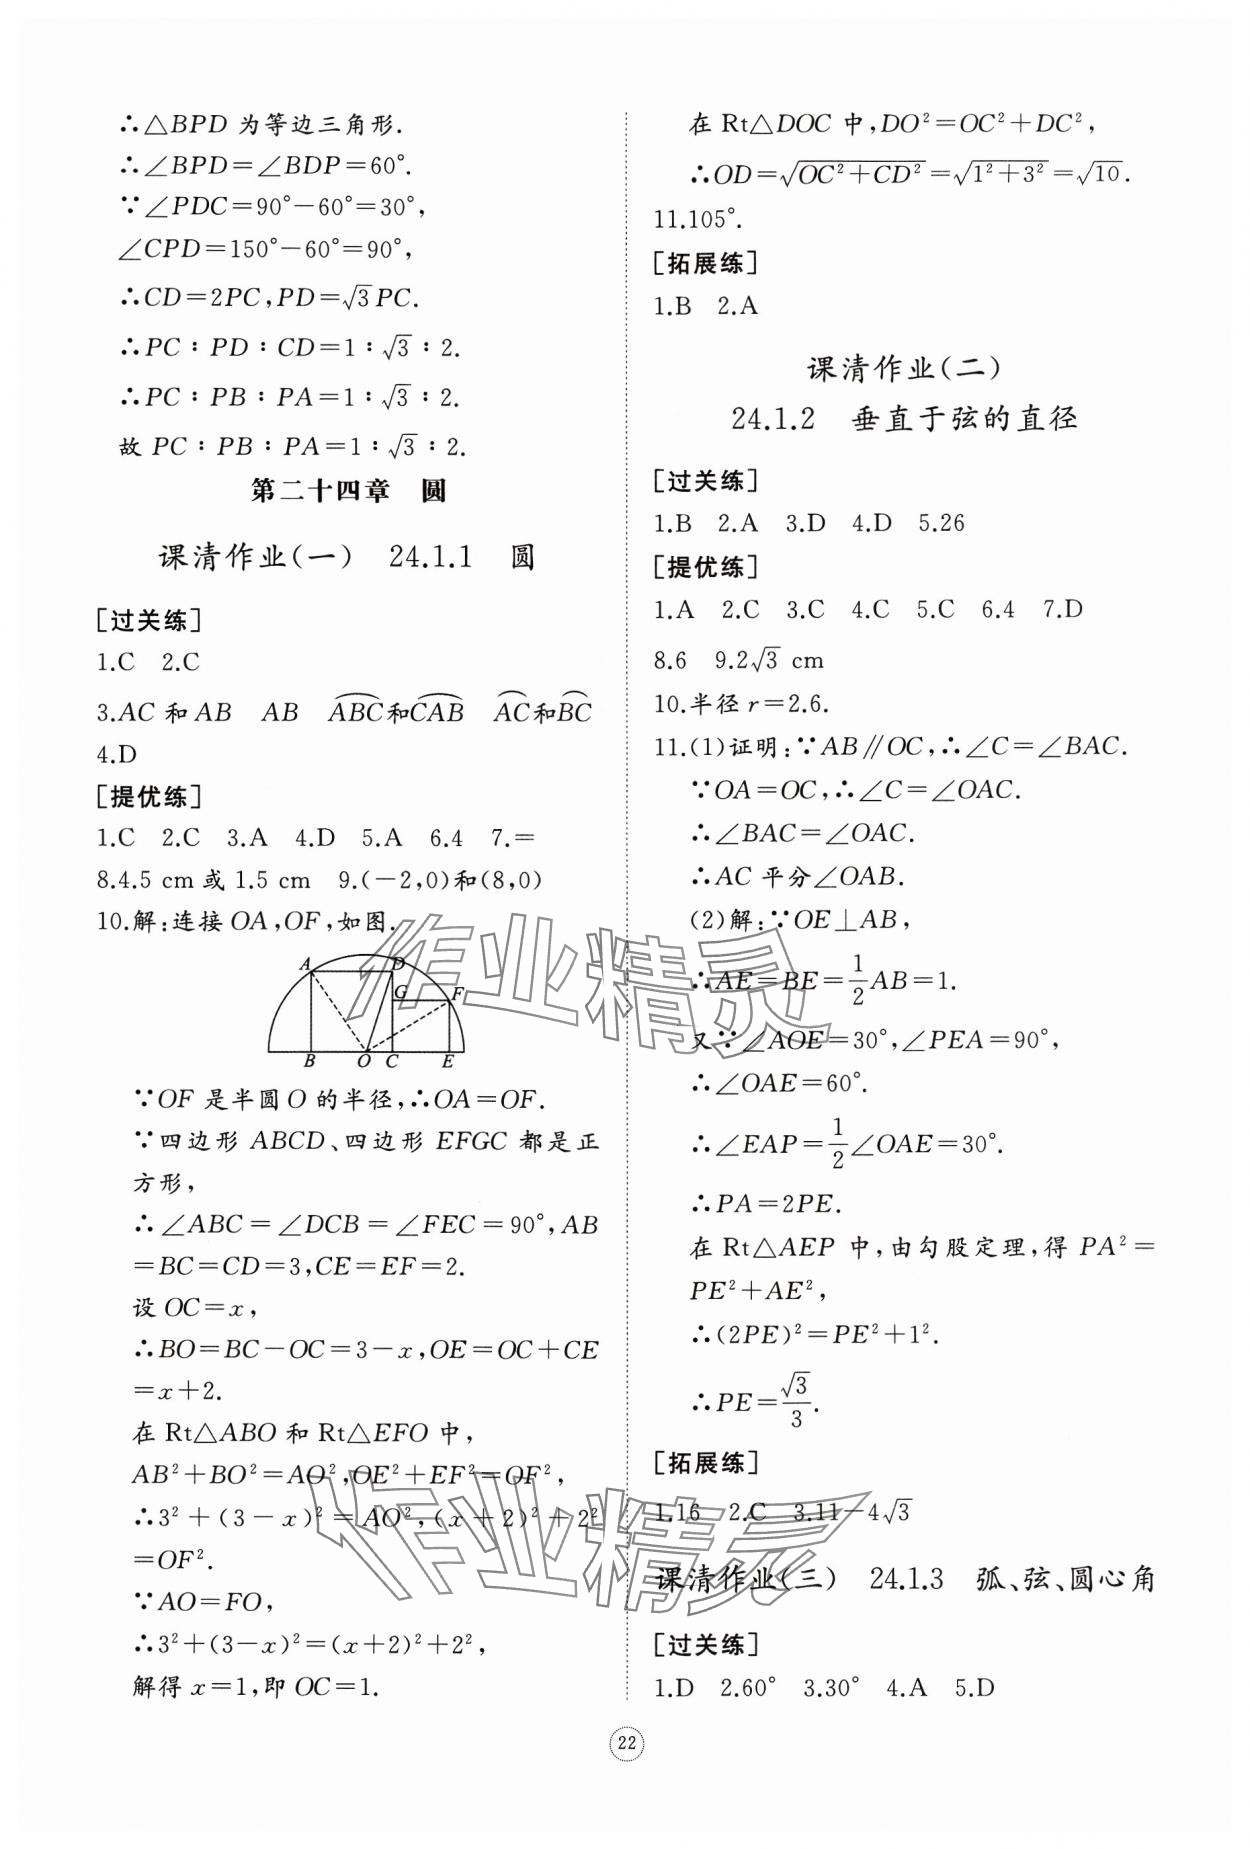 ∴△BPD 为等边三角形.
∴∠BPD=∠BDP=60°.
∵∠PDC=90°-60°=30°,
∠CPD=150°-60°=90°,
∴CD=2PC,PD=√3PC.
∴PC∶PD∶CD=1∶√3∶2.
∴PC∶PB∶PA=1∶√3∶2.
故 PC∶PB∶PA=1∶√3∶2.
第二十四章 圆
课清作业(一) 24.1.1 圆
[过关练]
1.C 2.C
3.AC 和 AB AB ⌒ABC和⌒CAB ⌒AC和⌒BC
4.D
[提优练]
1.C 2.C 3.A 4.D 5.A 6.4 7.=
8.4.5 cm 或 1.5 cm 9.(-2,0)和(8,0)
10.解:连接 OA,OF,如图.
A D
G F
B O C E
∵OF 是半圆 O 的半径,∴OA=OF.
∵四边形 ABCD、四边形 EFGC 都是正
方形,
∴∠ABC=∠DCB=∠FEC=90°,AB
=BC=CD=3,CE=EF=2.
设 OC=x,
∴BO=BC-OC=3-x,OE=OC+CE
=x+2.
在 Rt△ABO 和 Rt△EFO 中,
AB²+BO²=AO²,OE²+EF²=OF²,
∴3²+(3-x)²=AO²,(x+2)²+2²
=OF².
∵AO=FO,
∴3²+(3-x)²=(x+2)²+2²,
解得 x=1,即 OC=1.
在 Rt△DOC 中,DO²=OC²+DC²,
∴OD=√(OC²+CD²)=√(1²+3²)=√10.
11.105°.
[拓展练]
1.B 2.A
课清作业(二)
24.1.2 垂直于弦的直径
[过关练]
1.B 2.A 3.D 4.D 5.26
[提优练]
1.A 2.C 3.C 4.C 5.C 6.4 7.D
8.6 9.2√3 cm
10.半径 r=2.6.
11.(1)证明:∵AB∥OC,∴∠C=∠BAC.
∵OA=OC,∴∠C=∠OAC.
∴∠BAC=∠OAC.
∴AC 平分∠OAB.
(2)解:∵OE⊥AB,
∴AE=BE=1/2AB=1.
又∵∠AOE=30°,∠PEA=90°,
∴∠OAE=60°.
∴∠EAP=1/2∠OAE=30°.
∴PA=2PE.
在 Rt△AEP 中,由勾股定理,得 PA²=
PE²+AE²,
∴(2PE)²=PE²+1².
∴PE=√3/3.
[拓展练]
1.16 2.C 3.11-4√3
课清作业(三) 24.1.3 弧、弦、圆心角
[过关练]
1.D 2.60° 3.30° 4.A 5.D
22
作业精灵
作业精灵